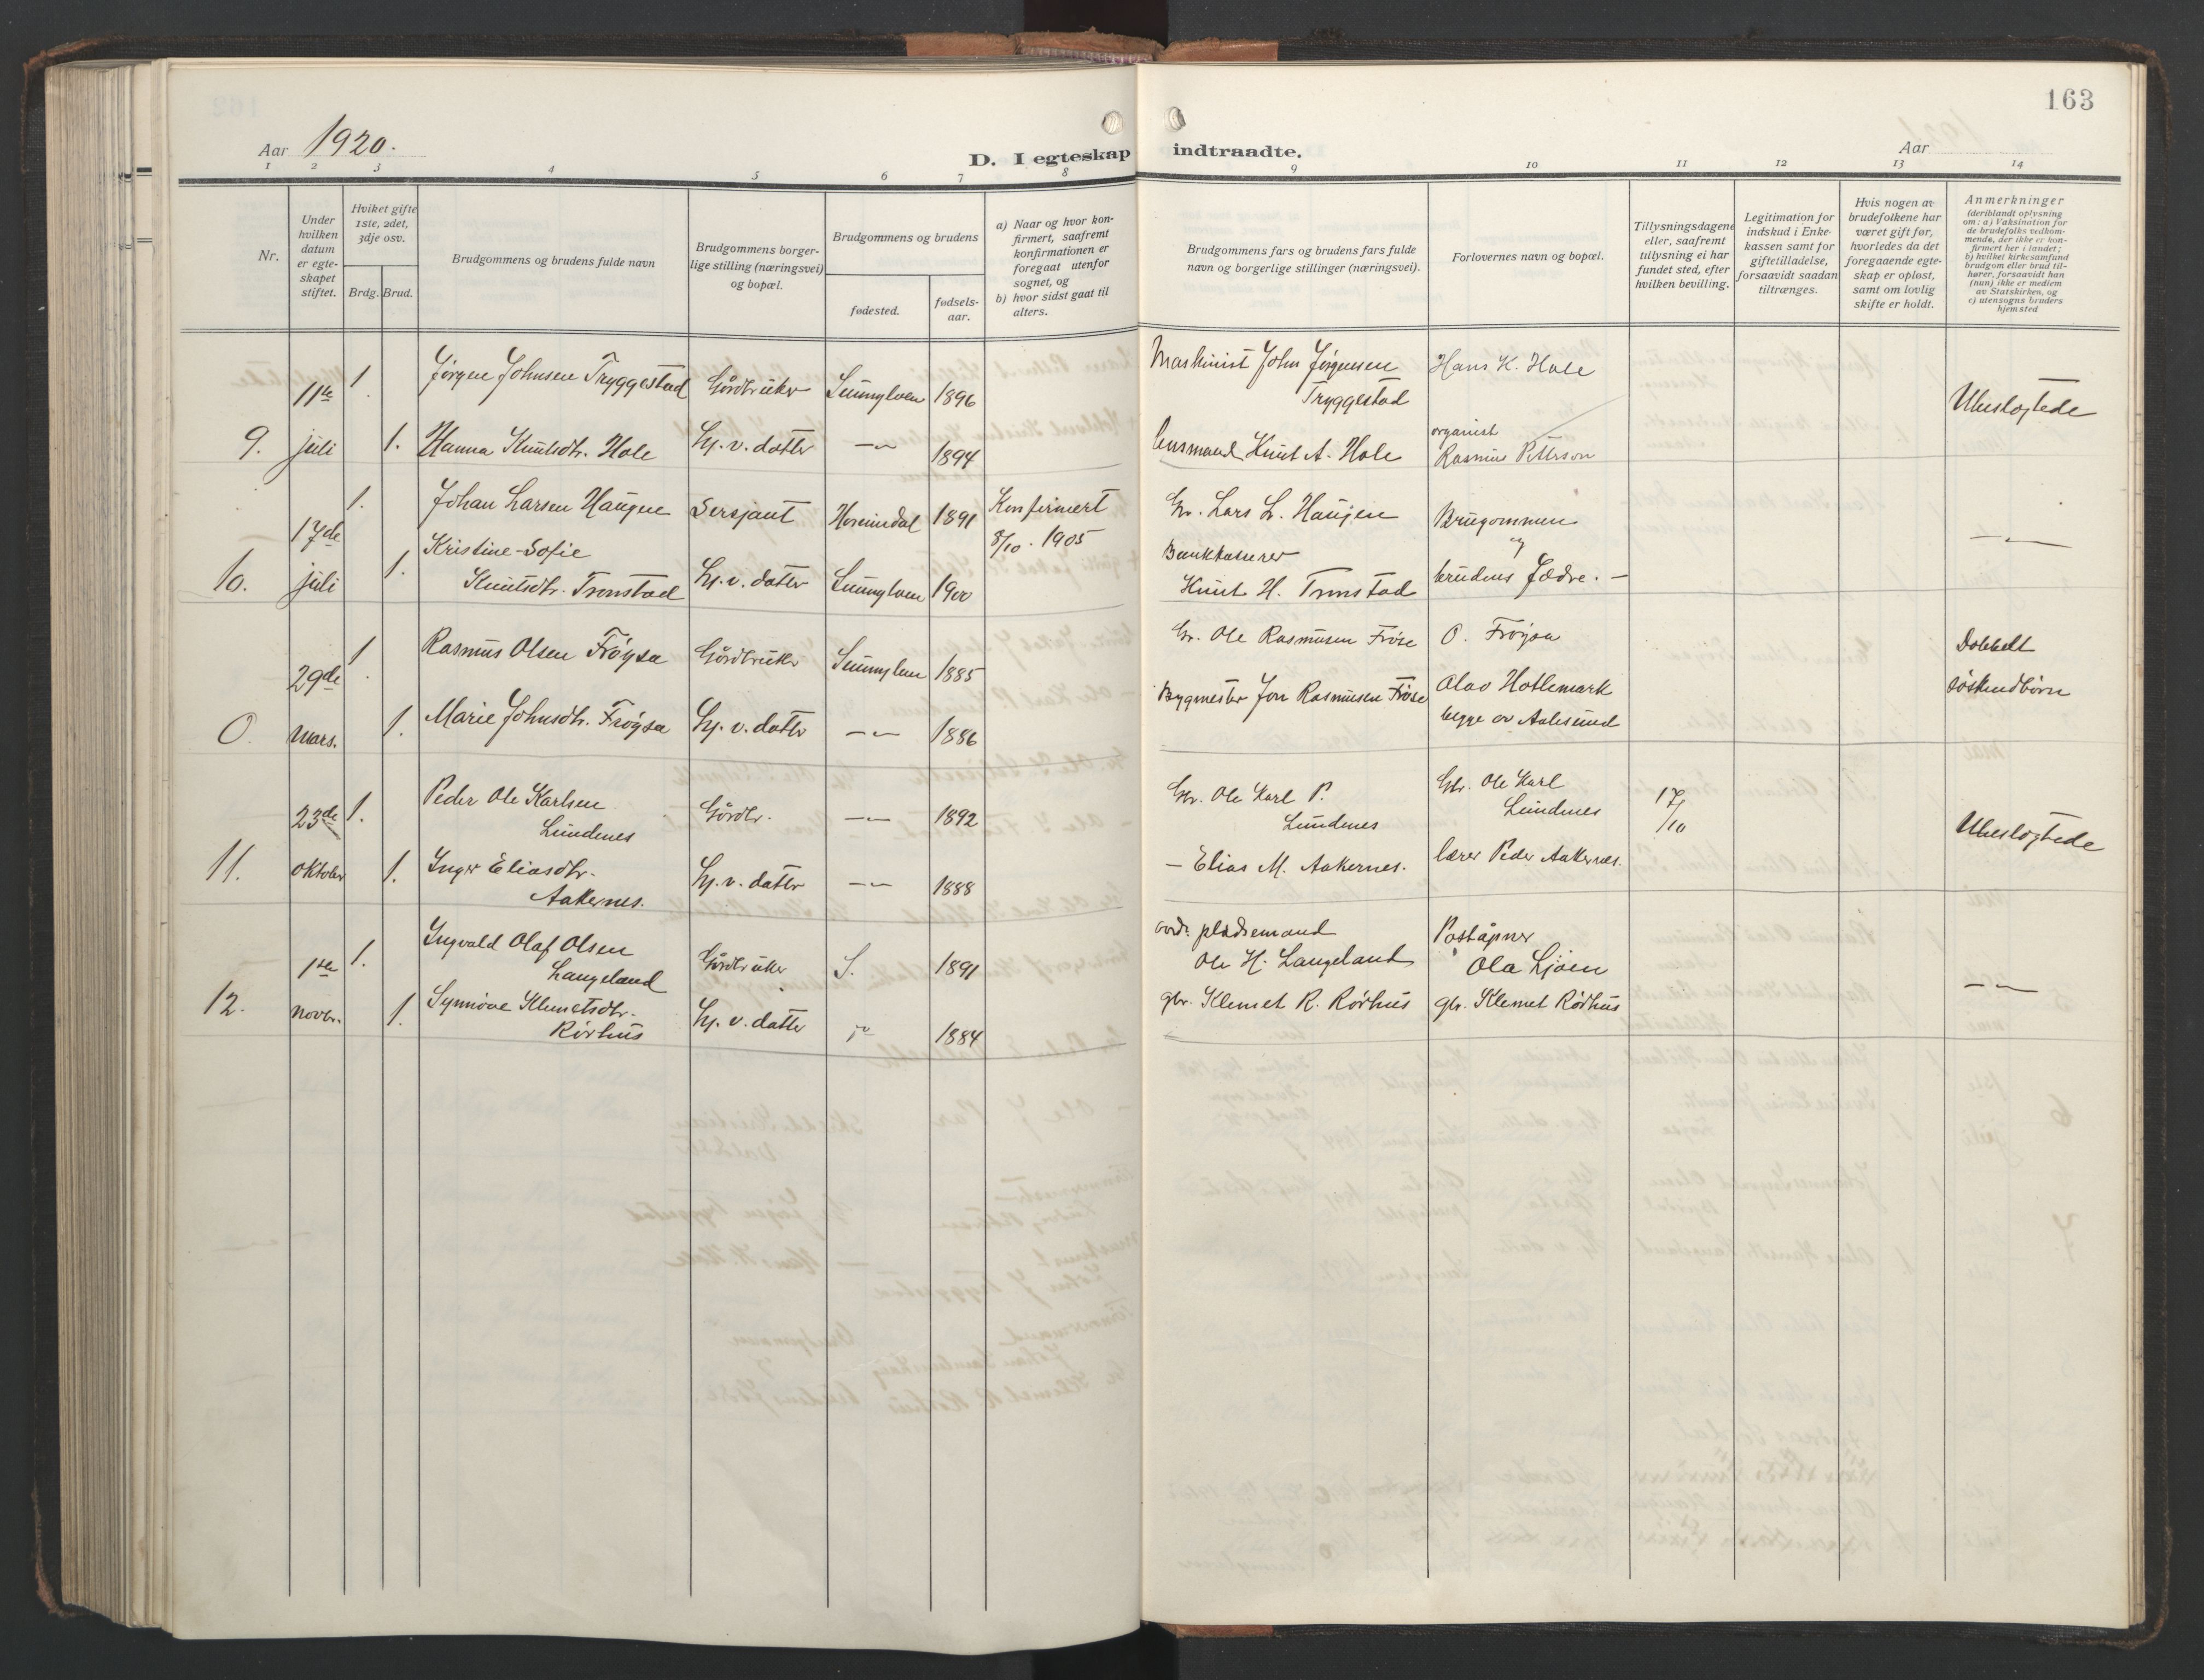 163
Aar 1920.
D. I egteskap indtraadte.
Aar
1 2 3 4 5 6 7 8 9 10 11 12 13 14
Nr.
Under hvilken datum er egteskapet stiftet.
Hviket gifte 1ste, 2det, 3dje osv.
Brdg. Brud.
Brudgommens og brudens fulde navn
Brudgommens borgerlige stilling (næringsvei) og bopæl.
Brudgommens og brudens
fødested.
fødselsaar.
a) Naar og hvor konfirmert, saafremt konfirmationen er foregaat utenfor sognet, og
b) hvor sidst gaat til alters.
Brudgommens fars og brudens fars fulde navn og borgerlige stillinger (næringsvei).
Forlovernes navn og bopæl.
Tillysningsdagene eller, saafremt tillysning ei har fundet sted, efter hvilken bevilling.
Legitimation for indskud i Enkekassen samt for giftetilladelse, forsaavidt saadan tiltrænges.
Hvis nogen av brudefolkene har været gift før, hvorledes da det foregaaende egteskap er opløst, samt om lovlig skifte er holdt.
Anmerkninger
(deriblandt oplysning om: a) Vaksination for de brudefolks vedkommende, der ikke er konfirmert her i landet;
b) hvilket kirkesamfund brudgom eller brud tilhører, forsaavidt han (hun) ikke er medlem av Statskirken, og
c) utensogns bruders hjemsted
11te 1. Jørgen Johnsen Tryggestad Gårdbruker Sunnylven 1896 Maskinist John Jørgensen Tryggestad Hans K. Hole Ubeslegtede
9. juli 1. Hanna Knutsdtr. Hole Hj. v. datter —"— 1894 lensmand Knut A. Hole organist Rasmus Petterson
17de 1. Johan Larsen Haugen Sersjant Hornindal 1891 Konfirmert 8/10. 1905 Gbr. Lars L. Haugen Brugommen og —"—
10. juli 1. Kristine-Sofie Knutsdtr. Tronstad Hj. v. datter Sunnylven 1900 Bankkasserer Knut H. Tronstad brudens Fædre. —
29de 1. Rasmus Olsen Frøysa Gårdbruker Sunnylven 1885 Gbr. Ole Rasmusen Frøse O. Frøysa Dobbelt søskendbørn
0. Mars. 1. Marie Johnsdtr. Frøysa Hj. v. datter —"— 1886 Bygmester Jon Rasmusen Frøse Olav Hotlemark begge av Aalesund
23de 1. Peder Ole Karlsen Lundenes Gårdbr. —"— 1892 Gbr. Ole Karl P. Lundenes Gbr. Ole Karl Lundenes 17/10 Ubeslegtede
11. oktober 1. Inger Eliasdtr. Aakernes. Hj. v. datter —"— 1888 — Elias M. Aakernes. lærer Peder Aakernes.
1ste 1. Ingvald Olaf Olsen Langeland Gårdbruker S. 1891 pladsemand Ole H. Langeland Poståpner Ola Ljøen —"—
12. novbr. 1. Synnøve Klemetsdtr. Rørhus Hj. v. datter —"— 1884 gbr. Klemet R. Rørhus gbr. Klemet Rørhus